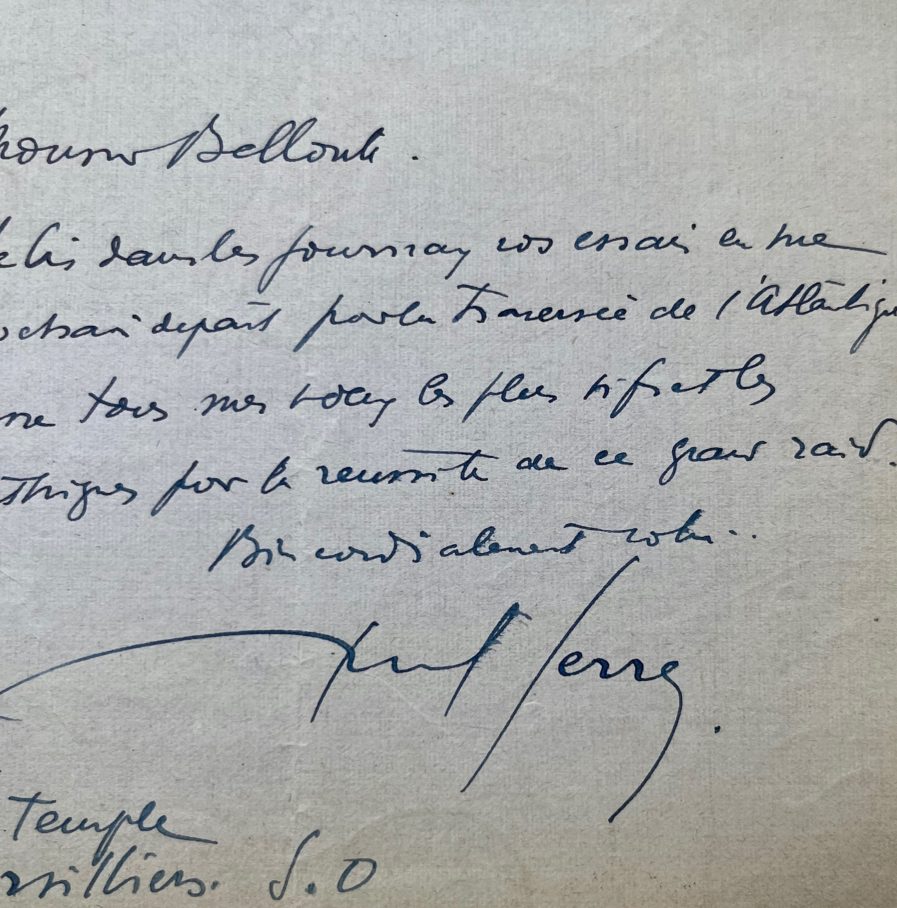 Monsieur Bellonte.
Je lis dans les journaux vos essais en vue
prochain départ pour la Traversée de l'Atlantique
tous mes vœux les plus
pour la réussite de ce grand raid.
Bien cordialement votre..
Temple
S.O